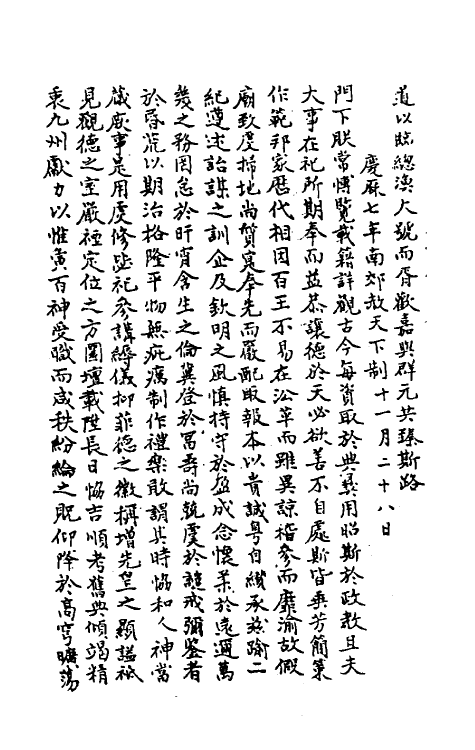 道以臨總渙大號而胥歡嘉與群元共臻斯路
慶厤七年南郊赦天下制十一月二十八日
門下朕常慱覽載籍詳觀古今每資取於典彞用昭斯於政教且夫
大事在祀所期奉而益恭讓德於天必欲善不自處斯皆垂芳簡策
作範邦家歷代相因百王不易在公革而雖異諒稽參而靡渝故假
廟致虔掃地尚質寔奉先而嚴配取報本以貴誠粤自纘承玆踰二
紀遵述詒謀之訓企及欽明之風慎持守於盈成念懷柔於遠邇萬
㡬之務罔怠於旰宵含生之倫冀登於冨壽尚兢虔於謹戒彌鉴者
於昏荒以期治格隆平物無疵癘制作禮樂敢謂其時恊和人神當
葳厥事是用虔修毖祀參講縟儀抑菲德之徽稱增先皇之顯謚祗
見觀德之室嚴禋定位之方圜壇載陞長日恊吉順考舊典傾竭精
衷九州獻力以惟寅百神受職而咸秩紛綸之貺仰降於高穹曠蕩